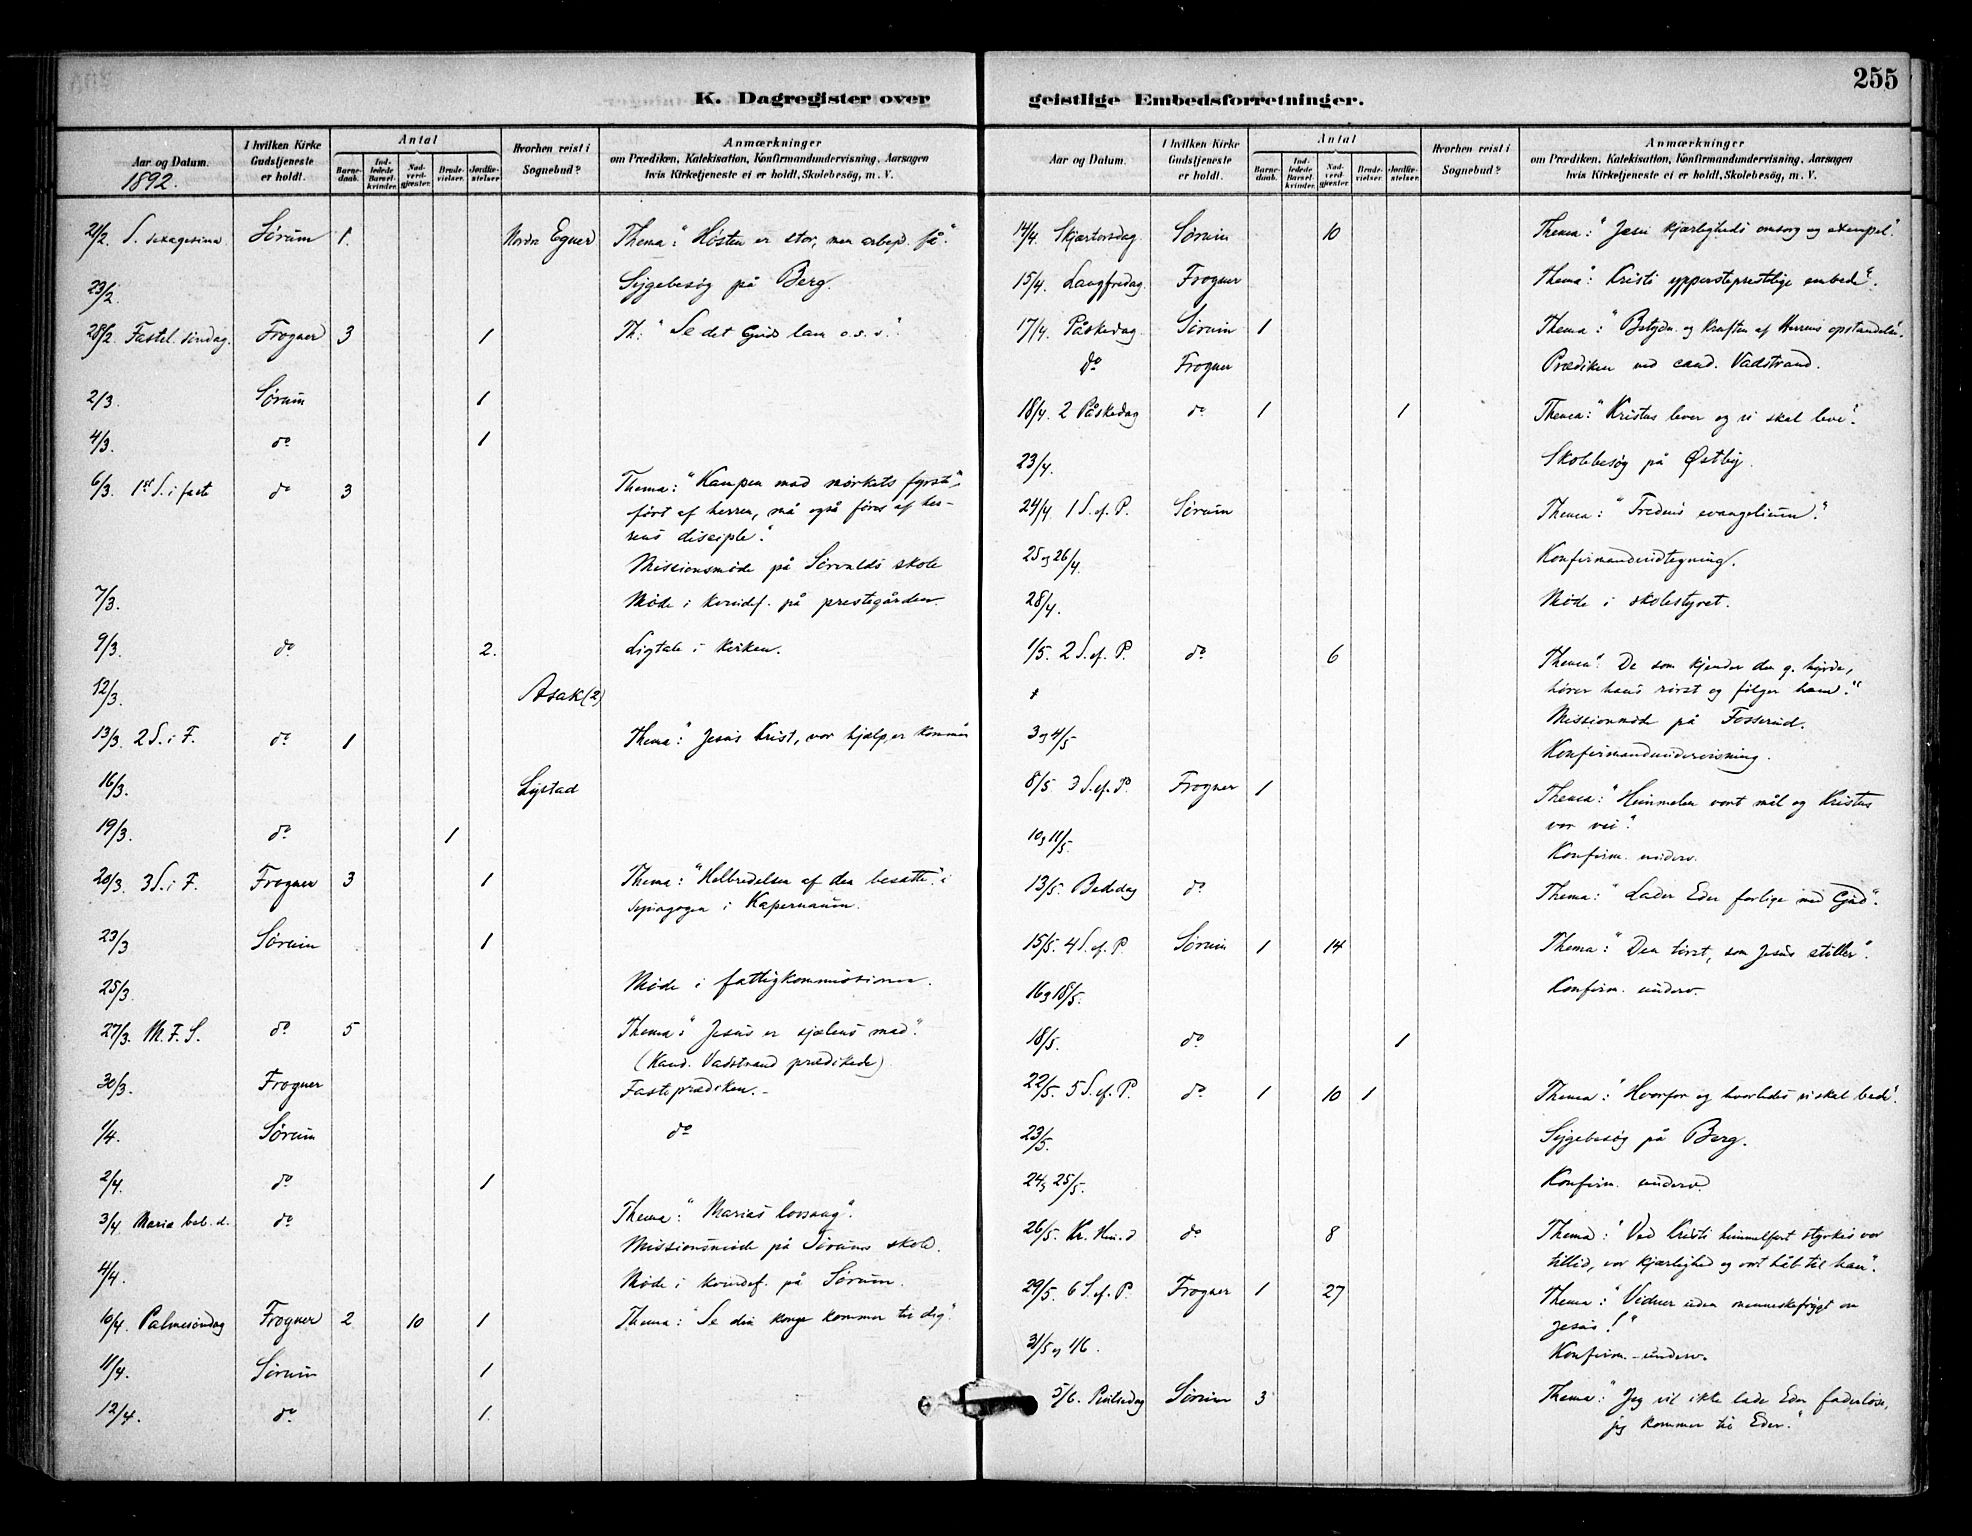 255
K. Dagregister over
Aar og Datum. 1892.
I hvilken Kirke Gudstjeneste er holdt.
Antal
Barnedaab. Indledede Barselkvinder. Nadverdgjester. Brudevielser. Jordfæstelser.
Hvorhen reist i Sognebud?
Anmærkninger
om Prædiken, Katekisation, Konfirmandundervisning, Aarsagen
hvis Kirketjeneste ei er holdt, Skolebesøg, m. V.
21/2. S. sexagesima Sørum 1. Nordre Egner Thema: "Høsten er stor, men arbejd. få".
23/2. Sygebesøg på Berg.
28/2. Fastel. søndag. Frogner 3 1 Th: "Se det Guds lam o.s.v."
2/3. Sørum 1
4/3. do 1
6/3. 1st S. i faste do 3 Thema: "Kampen mod mørkets fyrste,
ført af herren, må også føres af her-
rens disciple".
Missionsmøde på Sørvalds skole
7/3. Møde i kvindef. på prestegården.
9/3. do 2. Ligtale i kirken.
12/3. Asak (2)
13/3. 2 S. i F. do 1 Thema: "Jesus Krist, vor hjælper kommen
16/3. Lystad
19/3. do 1
20/3. 3 S. i F. Frogner 3 1 Thema: "Helbredelsen af den besatte" i
synagogen i Kapernaum.
23/3 Sørum 1
25/3. Møde i fattigkommissionen.
27/3. M. F. S. do 5 Thema: "Jesus er sjælens mad".
(Kand. Vadstrand prædikede)
30/3. Frogner Fasteprædiken.-
1/4. Sørum do
2/4. do 1
3/4 Maria beb. d. do Thema: "Marias lovsang".
Missionsmøde på Sørums skole.
4/4. Møde i kvindef. på Sørum.
10/4. Palmesøndag Frogner 2 10 1 Thema: "Se din konge kommer til dig".
11/4. Sørum 1
12/4. do 1.
geistlige Embedsforretninger.
Aar og Datum.
I hvilken Kirke Gudstjeneste er holdt.
Antal
Barnedaab. Indledede Barselkvinder. Nadverdgjester. Brudevielser. Jordfæstelser.
Hvorhen reist i Sognebud?
Anmærkninger
om Prædiken, Katekisation, Konfirmandundervisning, Aarsagen
hvis Kirketjeneste ei er holdt, Skolebesøg, m. V.
14/4. Skjærtorsdag Sørum 10 Thema: "Jesu kjærligheds omsorg og exempel".
15/4. Langfredag. Frogner Thema: "Kristi ypperstepræstlige embede".
17/4. Påskedag. Sørum 1 Thema: "Betydn. og kraften af Herrens opstandelse".
do Frogner Prædiken ved cand. Vadstrand.
18/4. 2 Påskedag do 1 1 Thema: "Kristus lever og vi skal leve".
23/4. Skolebesøg på Østby.
24/4 1 S. ef. P. Sørum Thema: "Fredens evangelium".
25 og 26/4. Konfirmandindtegning.
28/4. Møde i skolestyret.
1/5. 2 S. ef. P. do 6 Thema: "De som kjender den g. hyrde,
hører hans røst og følger ham".
Missionmøde på Fosserud.
3 og 4/5 Konfirmandundervisning.
8/5. 3 S. ef. P. Frogner 1 Thema: "Himmelen vort mål og Kristus
vor vei".
10 og 11/5. Konfirm. underv.
13/5. Bededag do Thema: "Lader Eder forlige med Gud".
15/5. 4 S. ef. P. Sørum 1 14 Thema: "Den tørst, som Jesus stiller".
16 og 18/5. Konfirm. underv.
18/5. do 1
22/5. 5 S. ef. P. do 1 10 1 Thema: "Hvorfor og hvorledes vi skal bede".
23/5. Sygebesøg på Berg.
24 og 25/5. Konfirm. underv.
26/5. Kr. Him. d do 8 Thema: "Ved Kristi himmelfart styrkes vor
tillid, vor kjærlighed og vort håb til ham".
29/5. 6 S. ef. P. Frogner 1 27 Thema: "Vidner uden menneskefrygt om
Jesus!"
31/5 og 1/6. Konfirm. - underv.
5/6. Pintsedag Sørum 3 Thema: "Jeg vil ikke lade Eder faderløse,
jeg kommer til Eder".